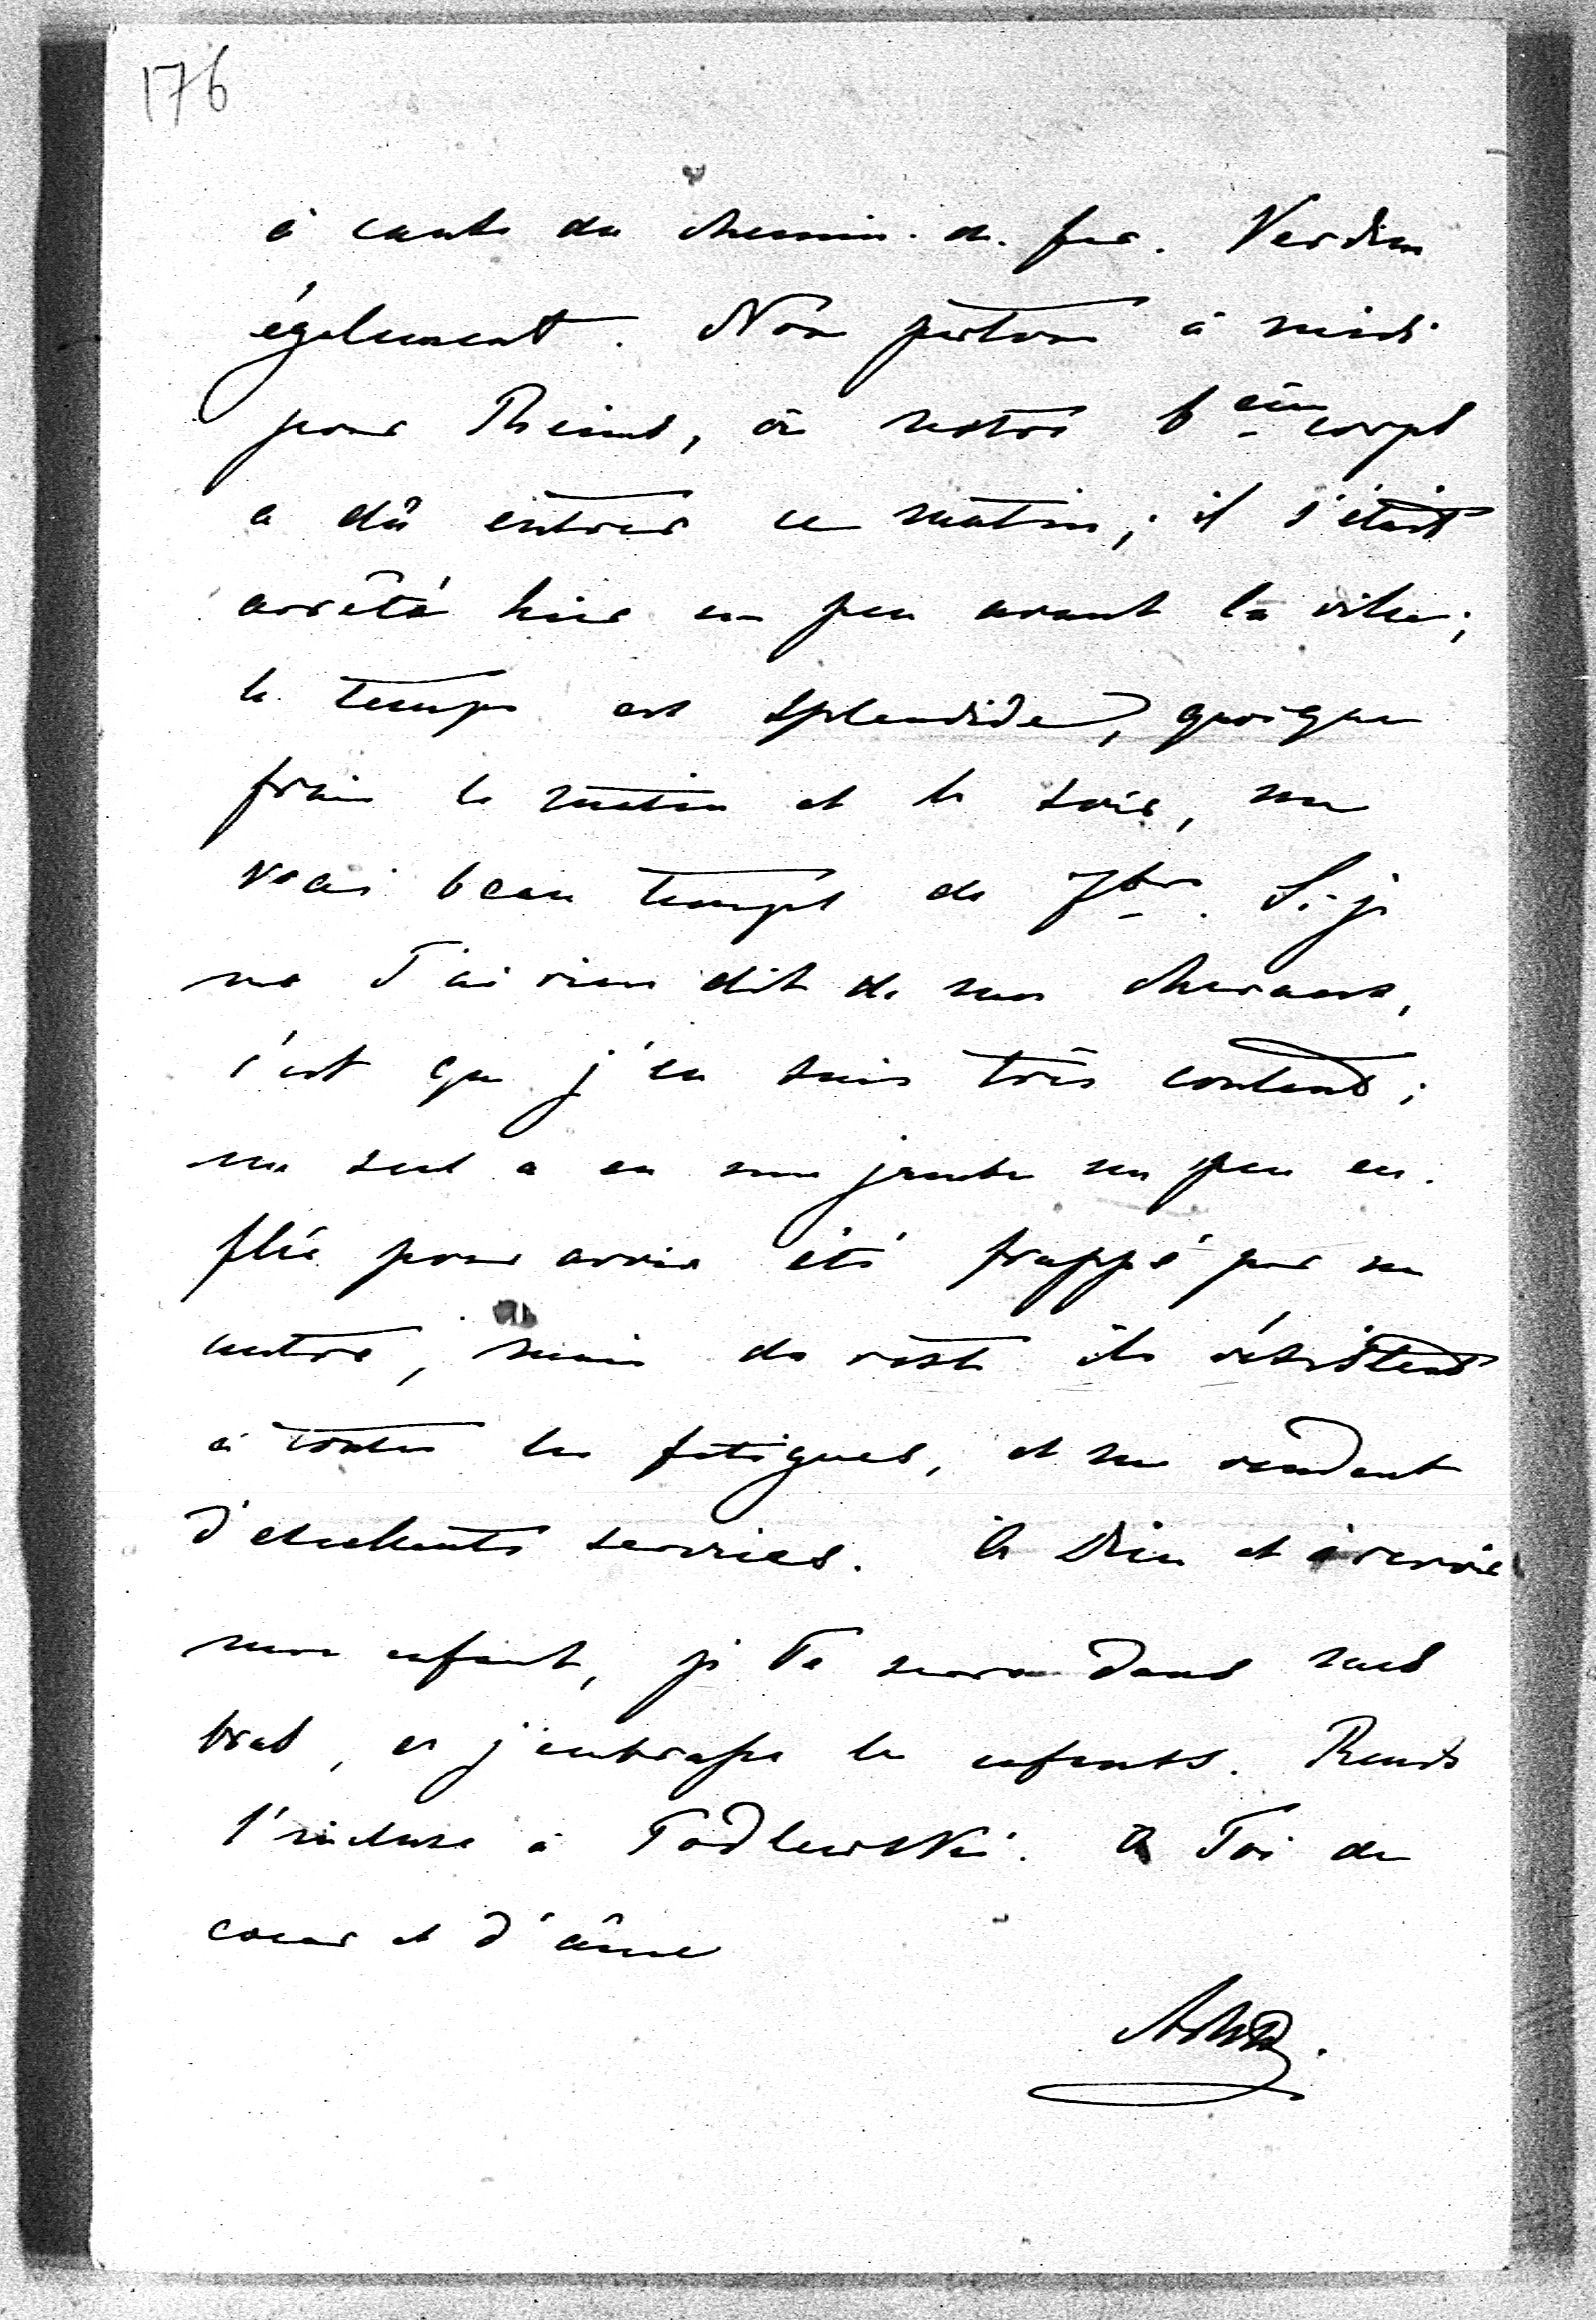 176
à cause du chemin de fer. Verdun
également. Nous partons à midi
pour Rheims, où notre 6ème corps
a dû entrer ce matin; il s'était
arrêté hier un peu avant la ville;
le temps est splendide, quoique
frais le matin et le soir, un
vrai beau temps de 7bre. Si je
ne T'ai rien dit de mes chevaux,
c'est que j'en suis très content;
un seul a eu une jambe un peu en-
flée pour avoir été frappé par un
autre, mais du reste ils résistent
à toutes les fatigues, et me rendent
d'excellents services. à Dieu et à revoir
mon enfant, je Te serre dans mes
bras, et j'embrasse les enfants. Rends
l'incluse à Podlewski. à Toi de
coeur et d'âme